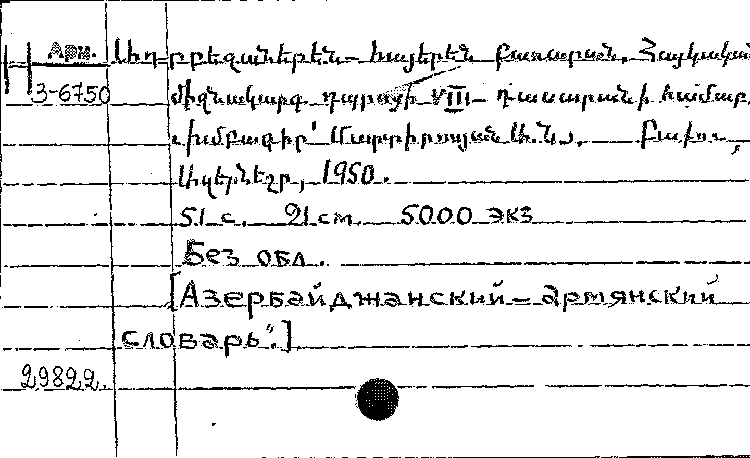 Арм.
Ադրբեջաներեն – հայերեն բառարան. Հայկական
3-6750
միջնակարգ դպրոցի VIII – դասարանի համար,
խմբագիր՝ Մարտիրոսյան Ա. Բաքու,
Ազերնեշր, 1950.
51 с. 21 см. 5000 экз
Без обл.
[Азербайджанский – армянский
словарь".]
29822.